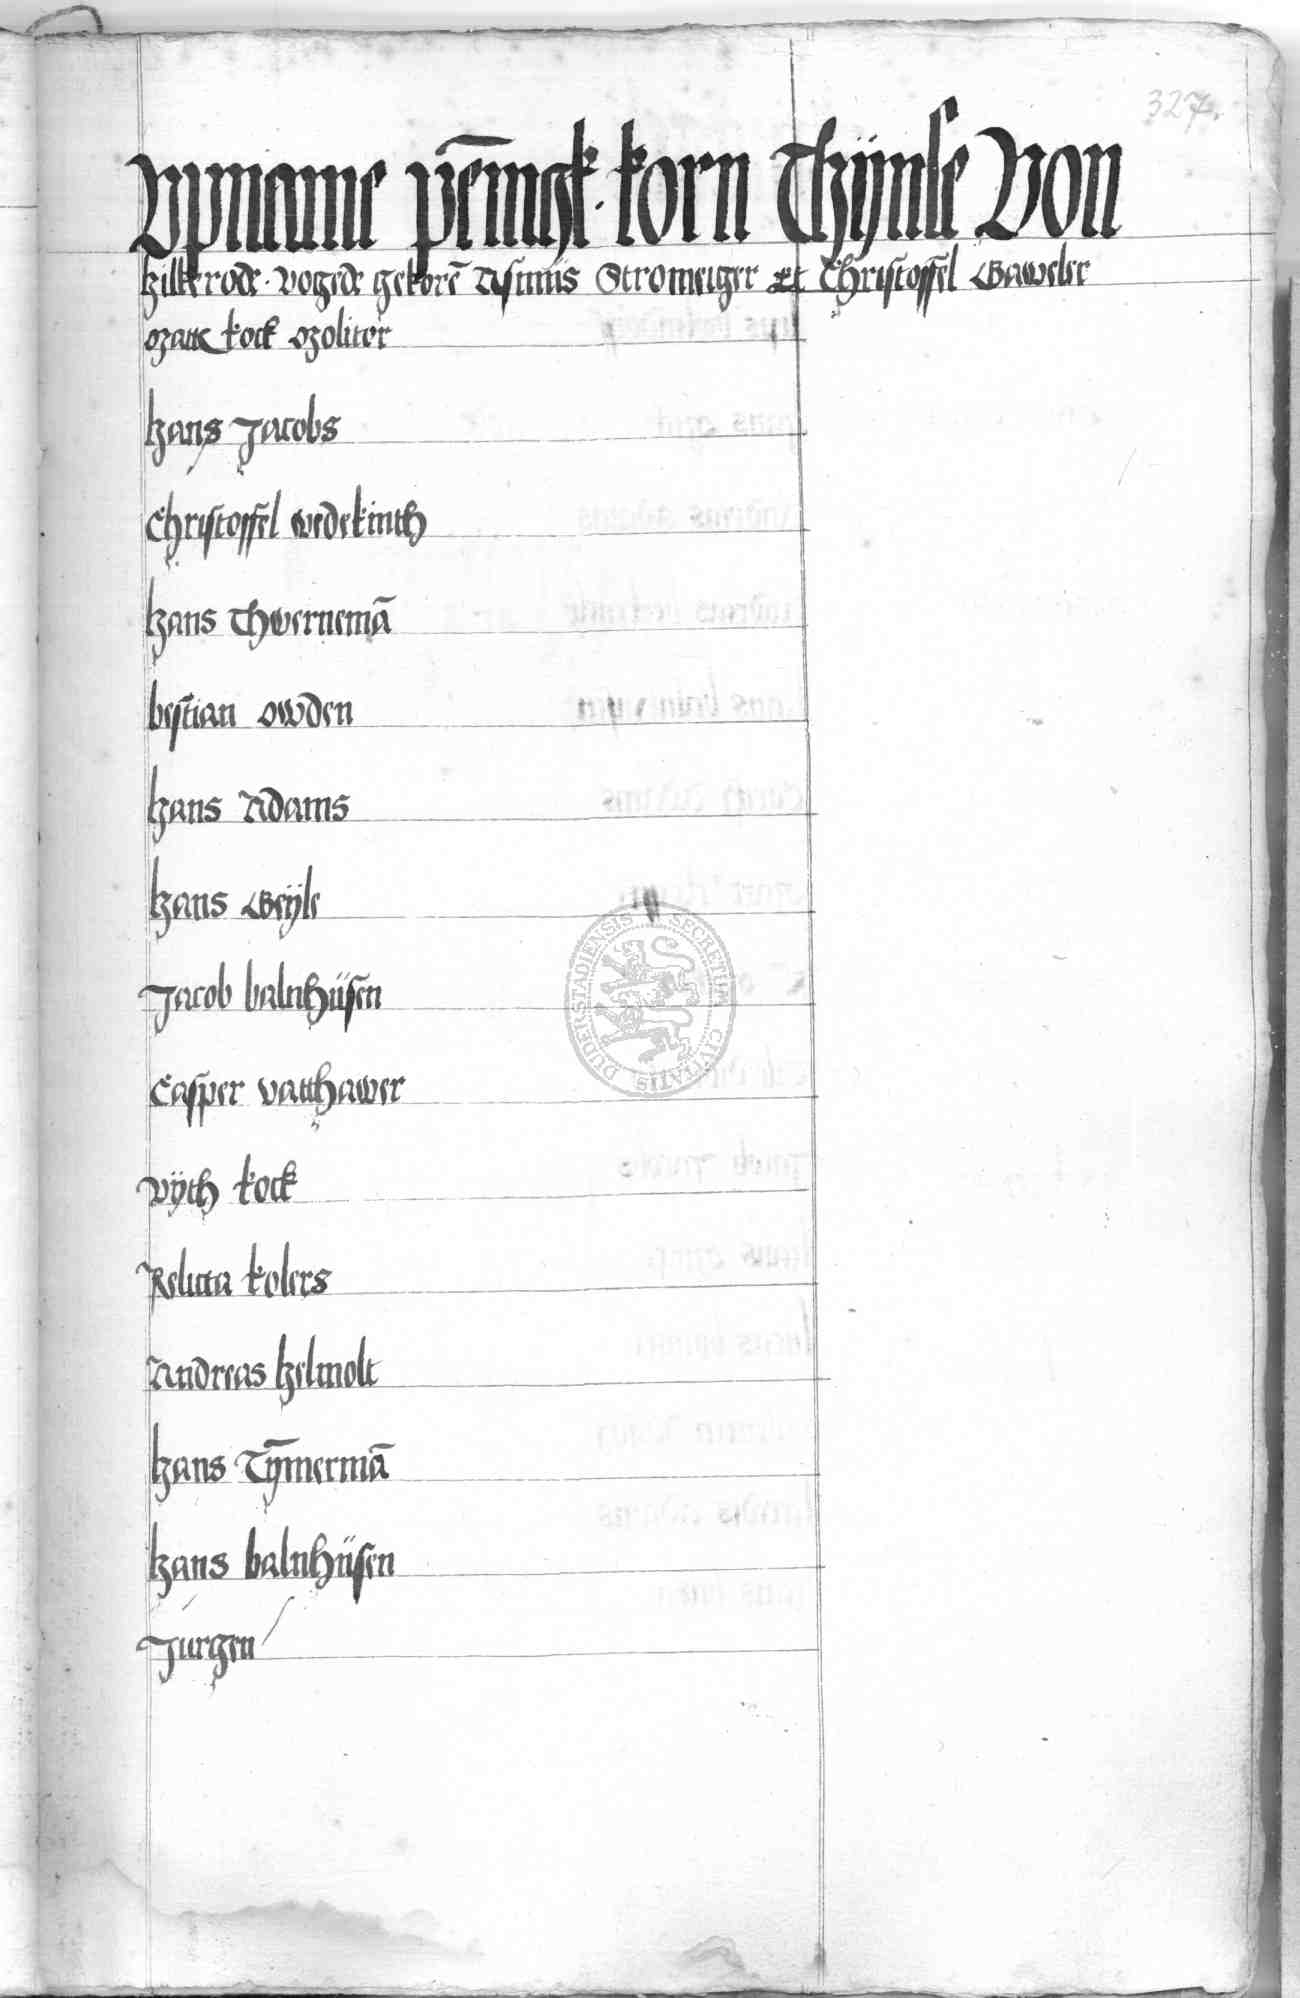 327.
Vpname pēnigk · korn Thÿnse Von
Hilkerode · vogede gekorē Asimus Stromeiger et Christoffel Gaweler
Matt kock Molitor
Hans Jacobs
Christoffel wedekinth
Hans Thwernemā
bestian owden
Hans Adams
Hans Geÿle
Jacob balnhüsen
Casper vatthawer
Vÿth kock
Relicta kolers
Andreas Helmolt
Hans Tȳmermā
Hans balnhüsen
Jurgen
SECRETUM CIVITATIS DUDERSTADIENSIS